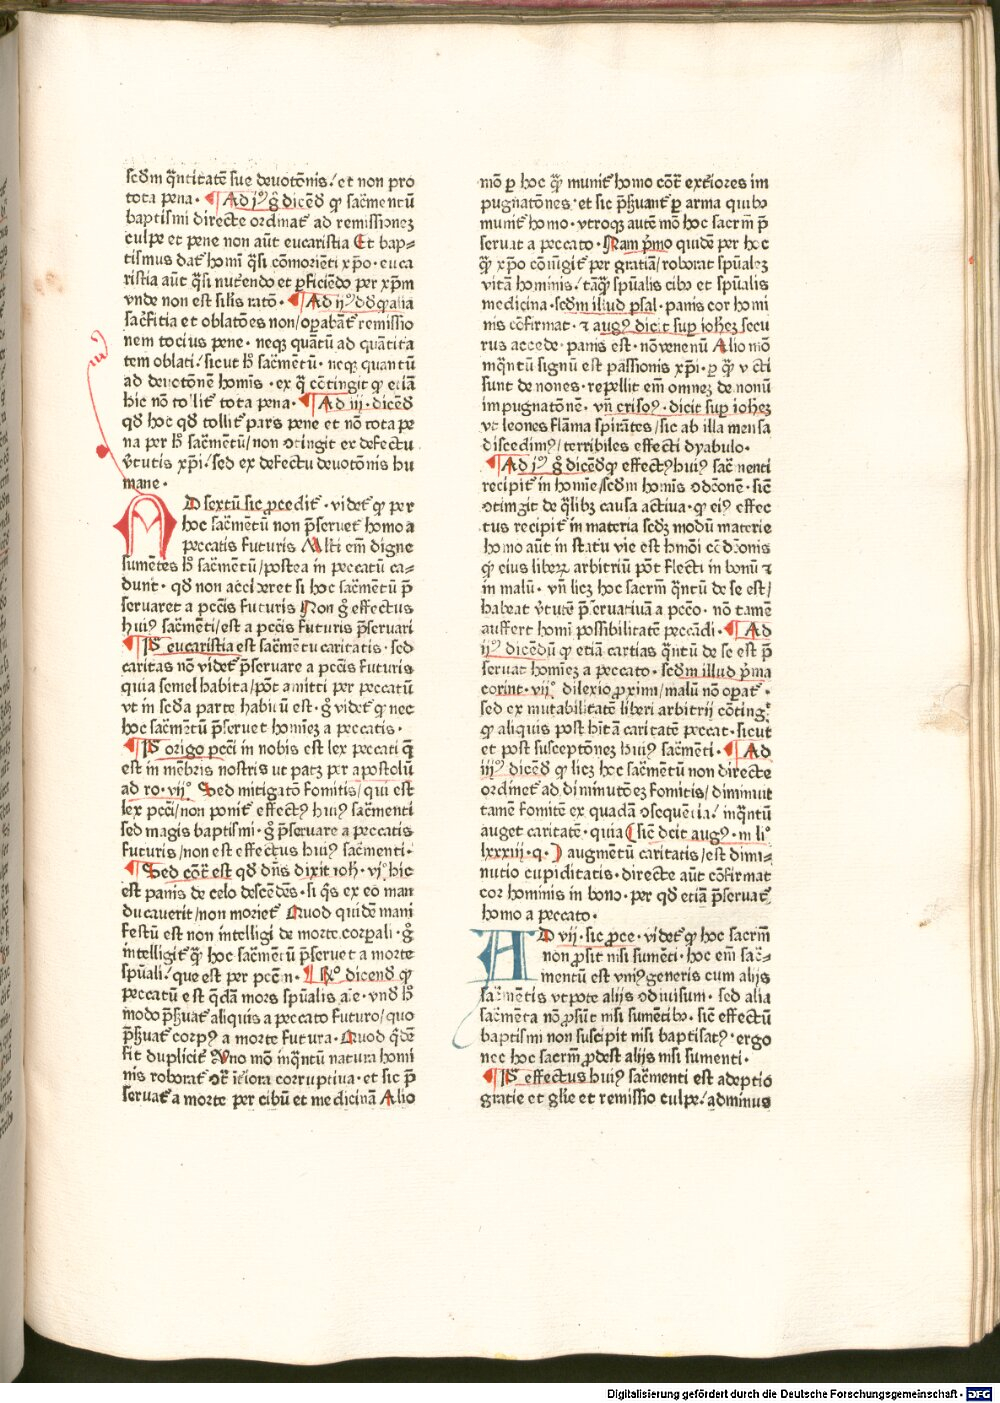 scdm q̃ntitatē sue deuotōnis / et non pro
tota pena · Ad jᵘ gͦ dicēd ꝙ sac̄mentū
baptismi directe ordinat̉ ad remissionez
culpe et pene non aūt eucaristia Et bap⸗
tismus dat̉ homī q̃si cōmoriēti xp̄o · euca
ristia aūt q̃si nut̉endo et ꝑficiēdo per xp̄m
vnde non est silis ratō · Ad ijᵘ dd ꝙ alia
sac̄fitia et oblatōes non / oꝑabāt̉ remissio
nem tocius pene · neqꝫ quātū ad quātita
tem oblati / sicut h̄ sac̄mētū · neqꝫ quantū
ad deuotōnē homīs · ex q̄ cōtingit ꝙ etiā
hic nō tollit̉ tota pena · Ad iii · dicēd
qd hoc qd tollit̉ pars pene et nō tota pe
na per h̄ sac̄mētū / non ↄtingit ex defectu
v̄tutis xp̄i / sed ex defectu deuotōnis hu
mane ·
AD sextū sic ꝓcedit̉ · videt̉ ꝙ per
hoc sac̄mētū non p̄seruet̉ homo a
peccatis futuris Mlti em̄ digne
sumētes h̄ sac̄mētū / postea in peccatū ca⸗
dunt · qd non accideret si hoc sac̄mētū p̄
seruaret a pcc̄is futuris Non gͦ effectus
huiꝰ sac̄mēti / est a pcc̄is futuris p̄seruari
P̄ eucaristia est sac̄mētū caritatis · sed
caritas nō videt̉ p̄seruare a pcc̄is futuris
quia semel habita / pōt amitti per peccatū
vt in scd̄a parte habitū est · gͦ videt̉ ꝙ nec
hoc sac̄mētū p̄seruet homīez a peccatis ·
P̄ origo pccī in nobis est lex peccati q̄
est in mēbris nostris vt patꝫ per apostolū
ad ro · vijᵒ Sed mitigatō fomitis / qui est
lex pccī / non ponit̉ effectꝰ huiꝰ sac̄menti
sed magis baptismi · gͦ p̄seruare a peccatis
futuris / non est effectus huiꝰ sac̄menti ·
Sed cōt̉ est qd dn̄s dixit ioh̄ · vjᵒ hic
est panis de celo descēdēs · si q̄s ex eo man
ducauerit / non moriet̉ Quod quidē mani
festū est non intelligi de morte corꝑali · gͦ
intelligit̉ ꝙ hoc sac̄mētū p̄seruet a morte
spūali / que est per pccm̄ · R̄ᵒ dicend ꝙ
peccatū est q̄dā mors spūalis aīe · vnd h̄
modo p̄s̄uat̉ aliquis a peccato futuro / quo
p̄s̄uat̉ corpꝰ a morte futura · Quod q̄dē
fit duplicit̉ Uno mō inq̄ntū natura homi
nis roborat̉ ↄt̉ īt̉iora corruptiua · et sic p̄
seruat̉ a morte per cibū et medicinā Alio
mō ꝑ hoc ꝙ munit̉ homo cōt̉ ext̉iores im
pugnatōnes · et sic p̄s̄uant̉ ꝑ arma quibꝰ
munit̉ homo · vtroqꝫ autē mō hoc sacrm̄ p̄
seruat a peccato · Nam pͥmo quidē per hoc
ꝙ xp̄o cōiūgit̉ per gratiā / roborat spūalez
vitā hominis / tāꝙ spūalis cibꝰ et spūalis
medicina · scdm illud psal · panis cor homi
nis cōfirmat · ⁊ augꝰ dicit suꝑ ioh̄ez secu
rus accede · panis est · nō venenū Alio mō
inq̄ntū signū est passionis xp̄i · ꝑ q̄ victi
sunt demones · repellit em̄ omnez demonū
impugnatōnē · vn̄ crisoꝰ · dicit suꝑ ioh̄ez
vt leones flāma spirātes / sic ab illa mensa
discedimꝰ / terribiles effecti dyabulo ·
Ad jᵘ gͦ dicēd ꝙ effectꝰ huiꝰ sac̄menti
recipit̉ in homīe / scdm homīs ↄdc̄onē · sic̄
ↄtingit de q̄libꝫ causa actiua · ꝙ eiꝰ effec
tus recipit̉ in materia scdꝫ modū materie
homo aūt in statu vie est hm̄oi cōdc̄onis
ꝙ eius liberꝫ arbitriū pōt flecti in bonū ⁊
in malū · vn̄ licꝫ hoc sacrm̄ q̄ntū de se est /
habeat v̄tutē p̄seruatiuā a pccō · nō tamē
auffert homī possibilitatē peccādi · Ad
ijᵘ dicēdū ꝙ etiā caritas q̄ntū de se est p̄
seruat homīez a peccato · scdm illud pͥma
corint · viijᵒ dilexio ꝓximi / malū nō oꝑat̉ ·
sed ex mutabilitatē liberi arbitrij cōting̉
ꝙ aliquis post hītā caritatē peccat · sicut
et post susceptōnez huiꝰ sac̄menti · Ad
iijᵘ dicēd ꝙ licꝫ hoc sac̄mētū non directe
ordinet̉ ad diminutōez fomitis / diminuit
tamē fomitē ex quadā ↄsequētia / inq̄ntū
auget caritatē · quia ( sic̄ dicit augꝰ · in liᵒ
lxxxiii · q · ) augmētū caritatis / est dimi⸗
nutio cupiditatis · directe aūt cōfirmat
cor hominis in bono · per qd etiā p̄seruat̉
homo a peccato ·
AD vij · sic ꝓce · videt̉ ꝙ hoc sacrm̄
non ꝓsit nisi sumēti · hoc em̄ sac̄⸗
mentū est vniꝰ generis cum alijs
sac̄mētis vtpote alijs ↄdiuisum · sed alia
sac̄mēta nō ꝓsūt nisi sumētibꝰ · sic̄ effectū
baptismi non suscipit nisi baptisatꝰ · ergo
nec hoc sacrm̄ ꝓdest alijs nisi sumenti ·
P̄ effectus huiꝰ sac̄menti est adeptio
gratie et glīe et remissio culpe / adminus
Digitalisierung gefördert durch die Deutsche Forschungsgemeinschaft · DFG